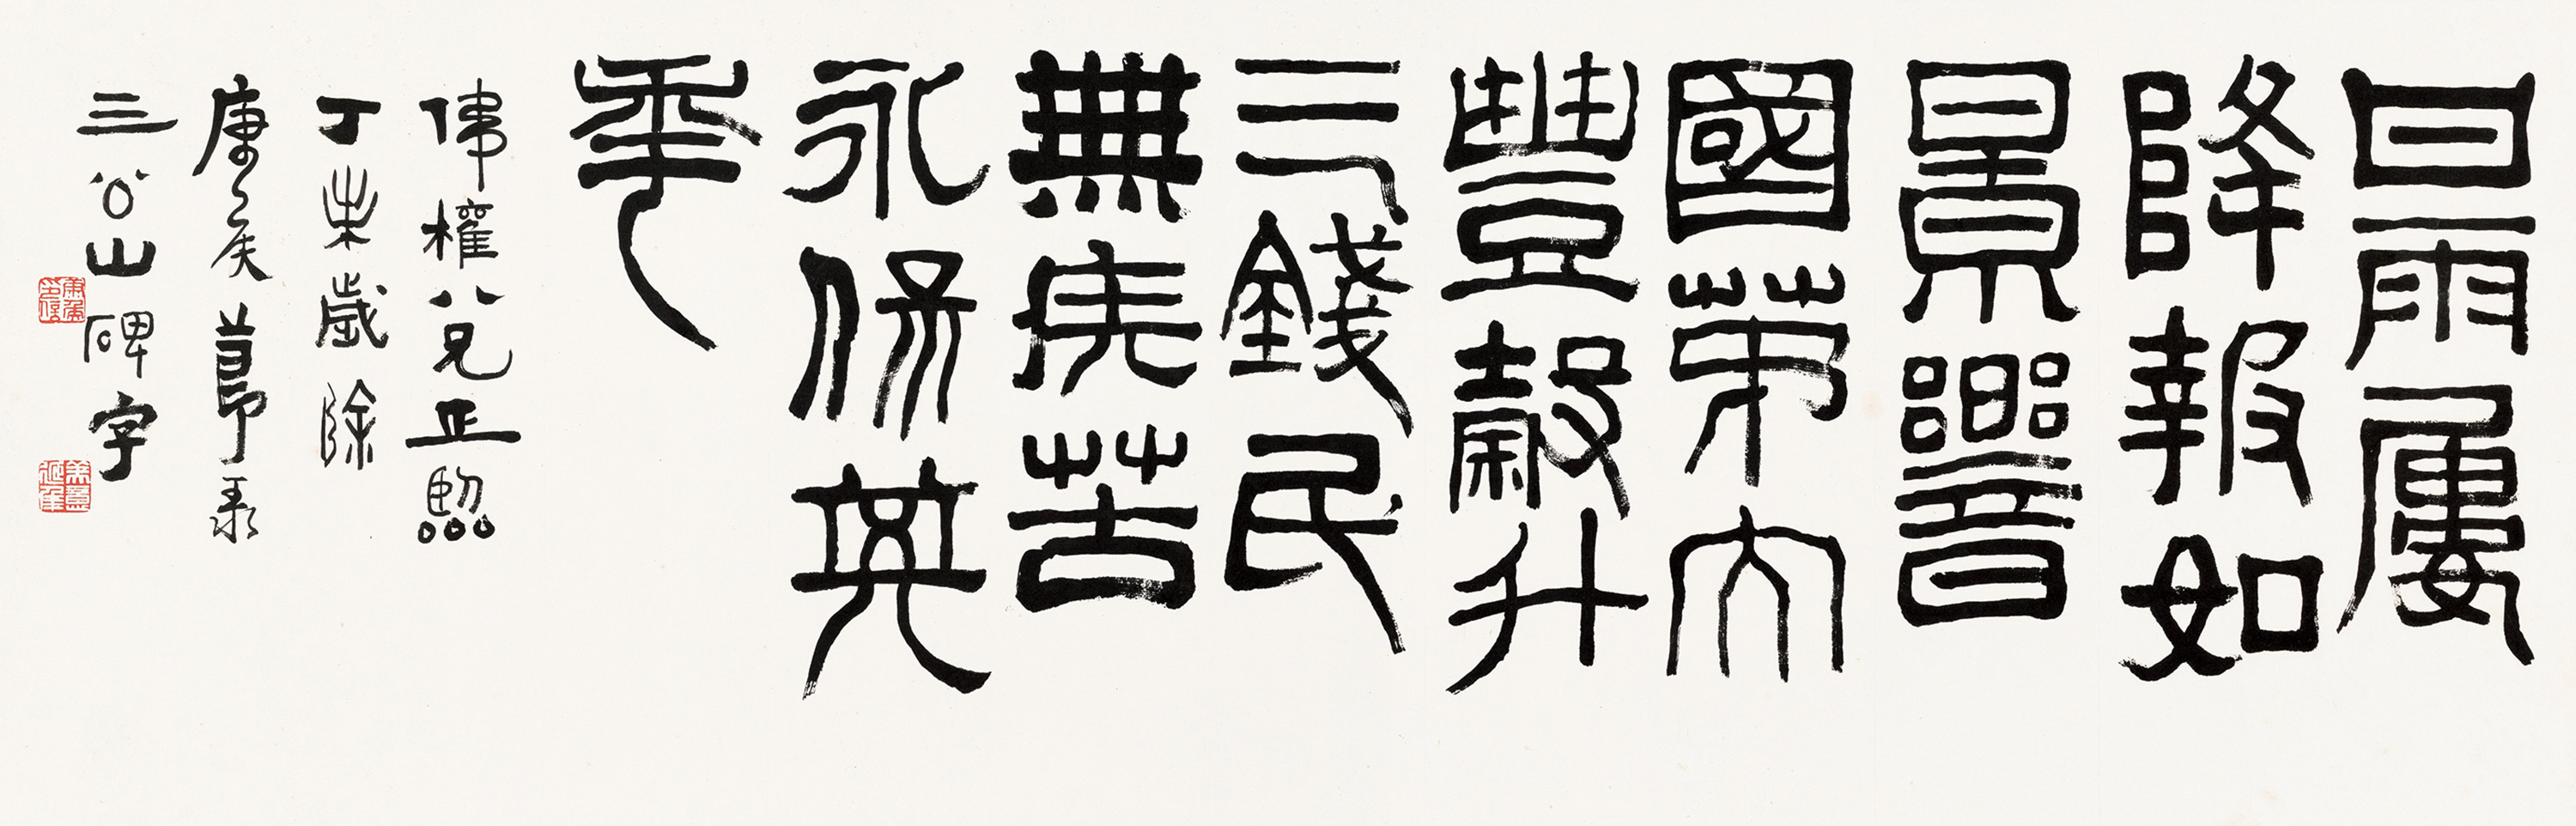 甘雨屢
降報如
景響
國界大
豐穀斗
三錢民
無疾苦
永保其
年
偉權八兄正臨
丁未歲除
康矦節彔
三公山碑字